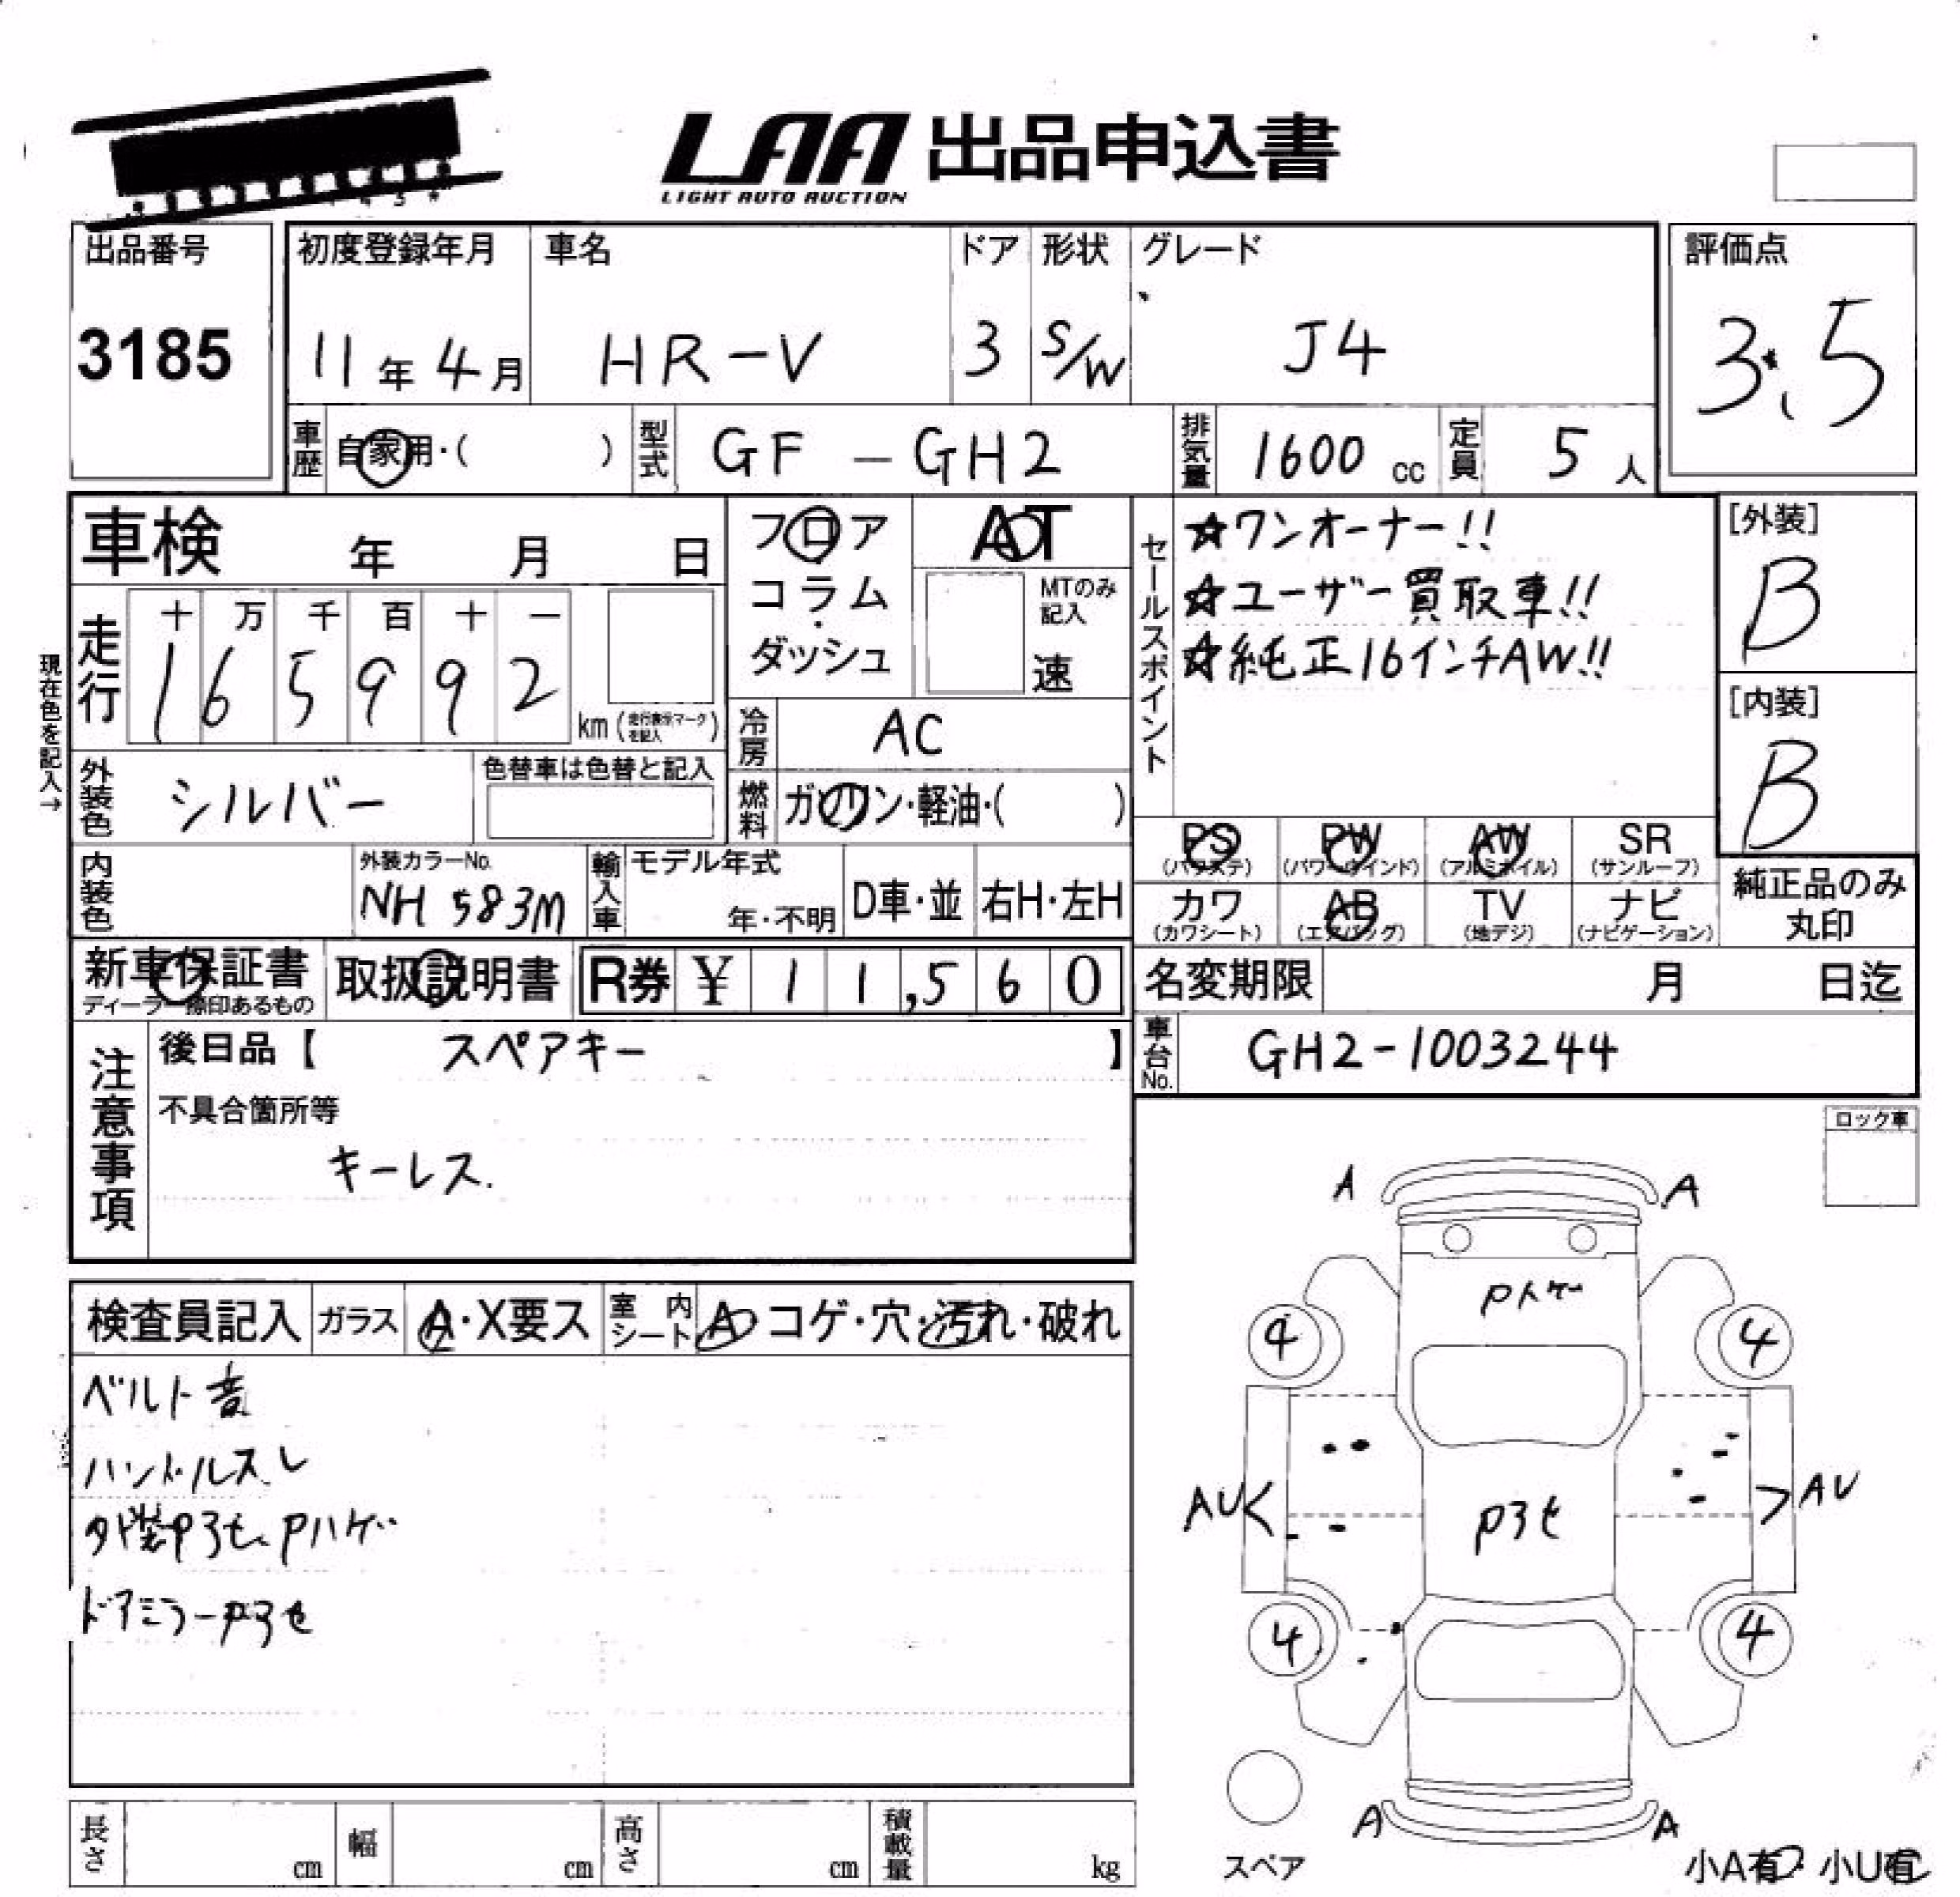 LAA 出品申込書
LIGHT AUTO AUCTION
出品番号
3185
初度登録年月
11年4月
車名
HR-V
ドア
3
形状
S/W
グレード
J4
評価点
3.5
車歴
自家用・( )
型式
GF-GH2
排気量
1600 cc
定員
5人
車検 年 月 日
フロア
コラム
ダッシュ
AT
MTのみ
記入
速
セールスポイント
☆ワンオーナー!!
☆ユーザー買取車!!
☆純正16インチAW!!
[外装]
B
[内装]
B
現在色を記入→
走行
十 万 千 百 十 一
1 6 5 9 9 2
km (走行表示マークを記入)
冷房
AC
外装色
シルバー
色替車は色替と記入
燃料
ガソリン・軽油・( )
PS (パワステ)
PW (パワーウインド)
AW (アルミホイル)
SR (サンルーフ)
カワ (カワシート)
AB (エアバッグ)
TV (地デジ)
ナビ (ナビゲーション)
純正品のみ
丸印
内装色
外装カラーNo.
NH 583M
輸入車
モデル年式
年・不明
D車・並
右H・左H
新車保証書
ディーラー捺印あるもの
取扱説明書
R券 ¥ 11,560
名変期限 月 日迄
車台No.
GH2-1003244
注意事項
後日品【 スペアキー 】
不具合箇所等
キーレス.
ロック車
検査員記入
ガラス A・X要ス
室内シート A コゲ・穴・汚れ・破れ
ベルト音
ハンドルスレ
外装Pヨセ、Pハゲ
ドアミラーPヨセ
A
A
Pハゲ
4
4
AU
Pヨセ
AU
4
4
A
A
スペア
小A有・小U有
長さ cm
幅 cm
高さ cm
積載量 kg